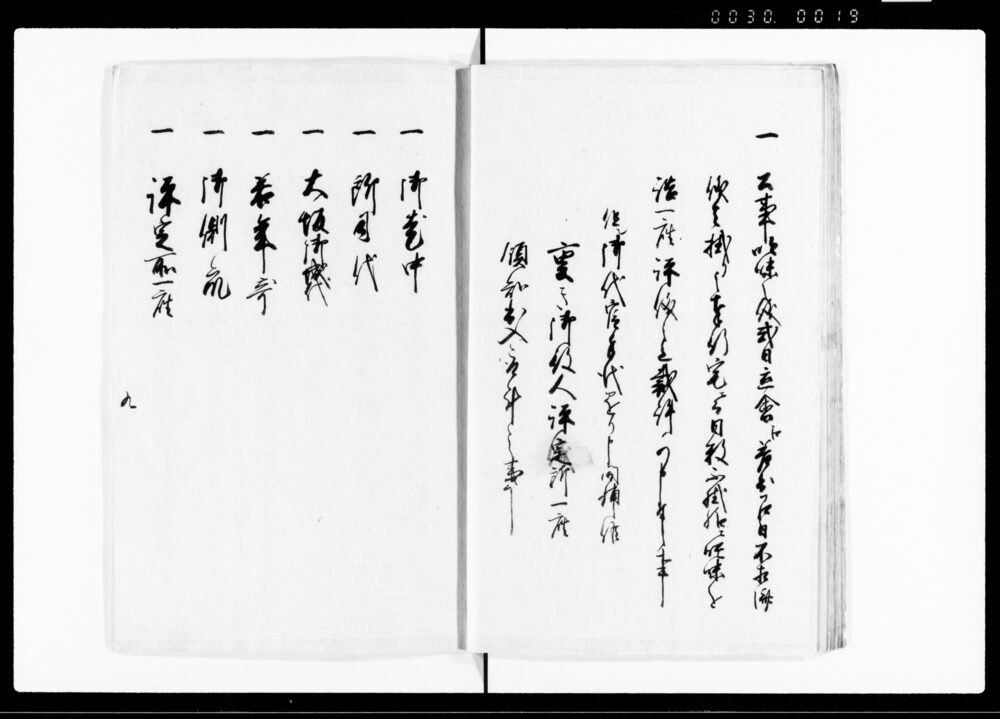 0030. 0019
一 公事吟味之儀式日立会江差出一日不相済
儀者掛り之奉行宅ニ而日数不掛様ニ吟味を
詰一座評議之上裁許可申付事
但御代官手代
重き御役人評定所一座
領知出入取計之事
一 御老中
一 所司代
一 大坂御城代
一 若年寄
一 御側衆
一 評定所一座
九